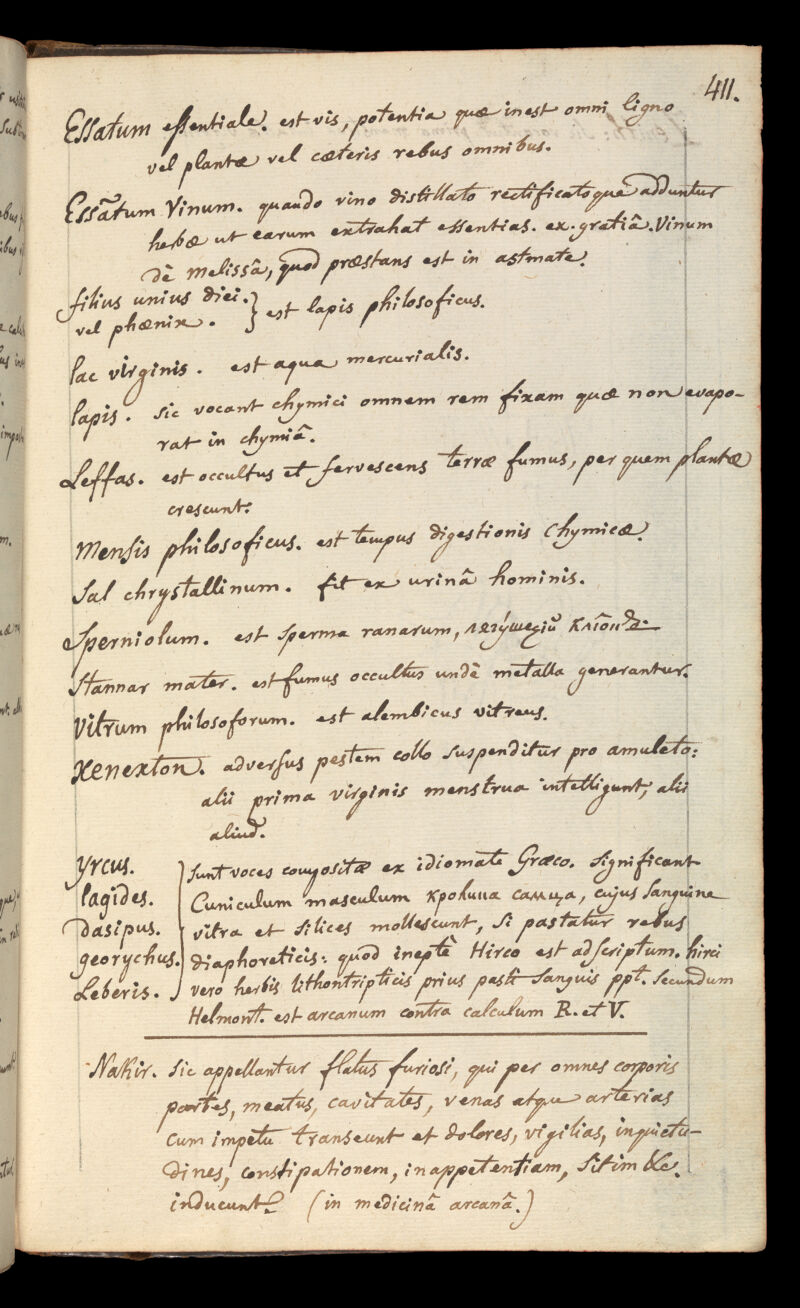 411.
Essatum essentiale. est vis, potentia quæ inest omni ligno
vel plantæ vel cæteris rebus omnibus.
Essātum Vinum. quando vino distillato rectificatoque adduntur
hebæ ut earum extrahat essentias. ex. gratiâ. Vinum
dē Melissâ, quod præstans est in astmate.
filius unius diei. } est lapis philosoficus.
vel phœnix.
lac virginis. est aqua mercurialis.
lapis. sic vocant chymici omnem rem fixam quæ non evapo-
rat in chymiâ.
Leffas. est occultus et fervescens terræ fumus, per quem plantæ
crescunt.
Mensis philosoficus. est tempus digestionis Chymicæ.
Sal chrystallinum. fit ex urinâ hominis.
Sperniolum. est sperma ranarum,
Stannar mater. est fumus occultus undē metalla generantur.
Vitrum philosoforum. est alembicus vitreus.
Xenexton. adversus pestem collo suspenditur pro amuleto:
alii prima virginis menstrua intelligunt, alii
aliud.
yrcus. sunt voces compositæ ex idiomate Græco. significant
lagides. Cuniculum masculum кролика самца, cujus sanguine
dasipus. vitra et silices mollescunt, si pastatur rebus
georychus. diaphoreticis: quod ineptè Hirco est adscriptum. hirci
Leberis. vero herbis lithontripticis prius pasti sanguis ppt. secundum
Helmont. est arcanum contra calculum R. et V.
Nakir. sic appellantur flatus furiosi, qui per omnes corporis
partes, meatus, cavitates, venas atque arterias
cum impetu transeunt et dolores, vigilias, inquietu-
dines, constipationem, inappetentiam, sitim &c.
inducunt. (in medicinâ arcanâ.)